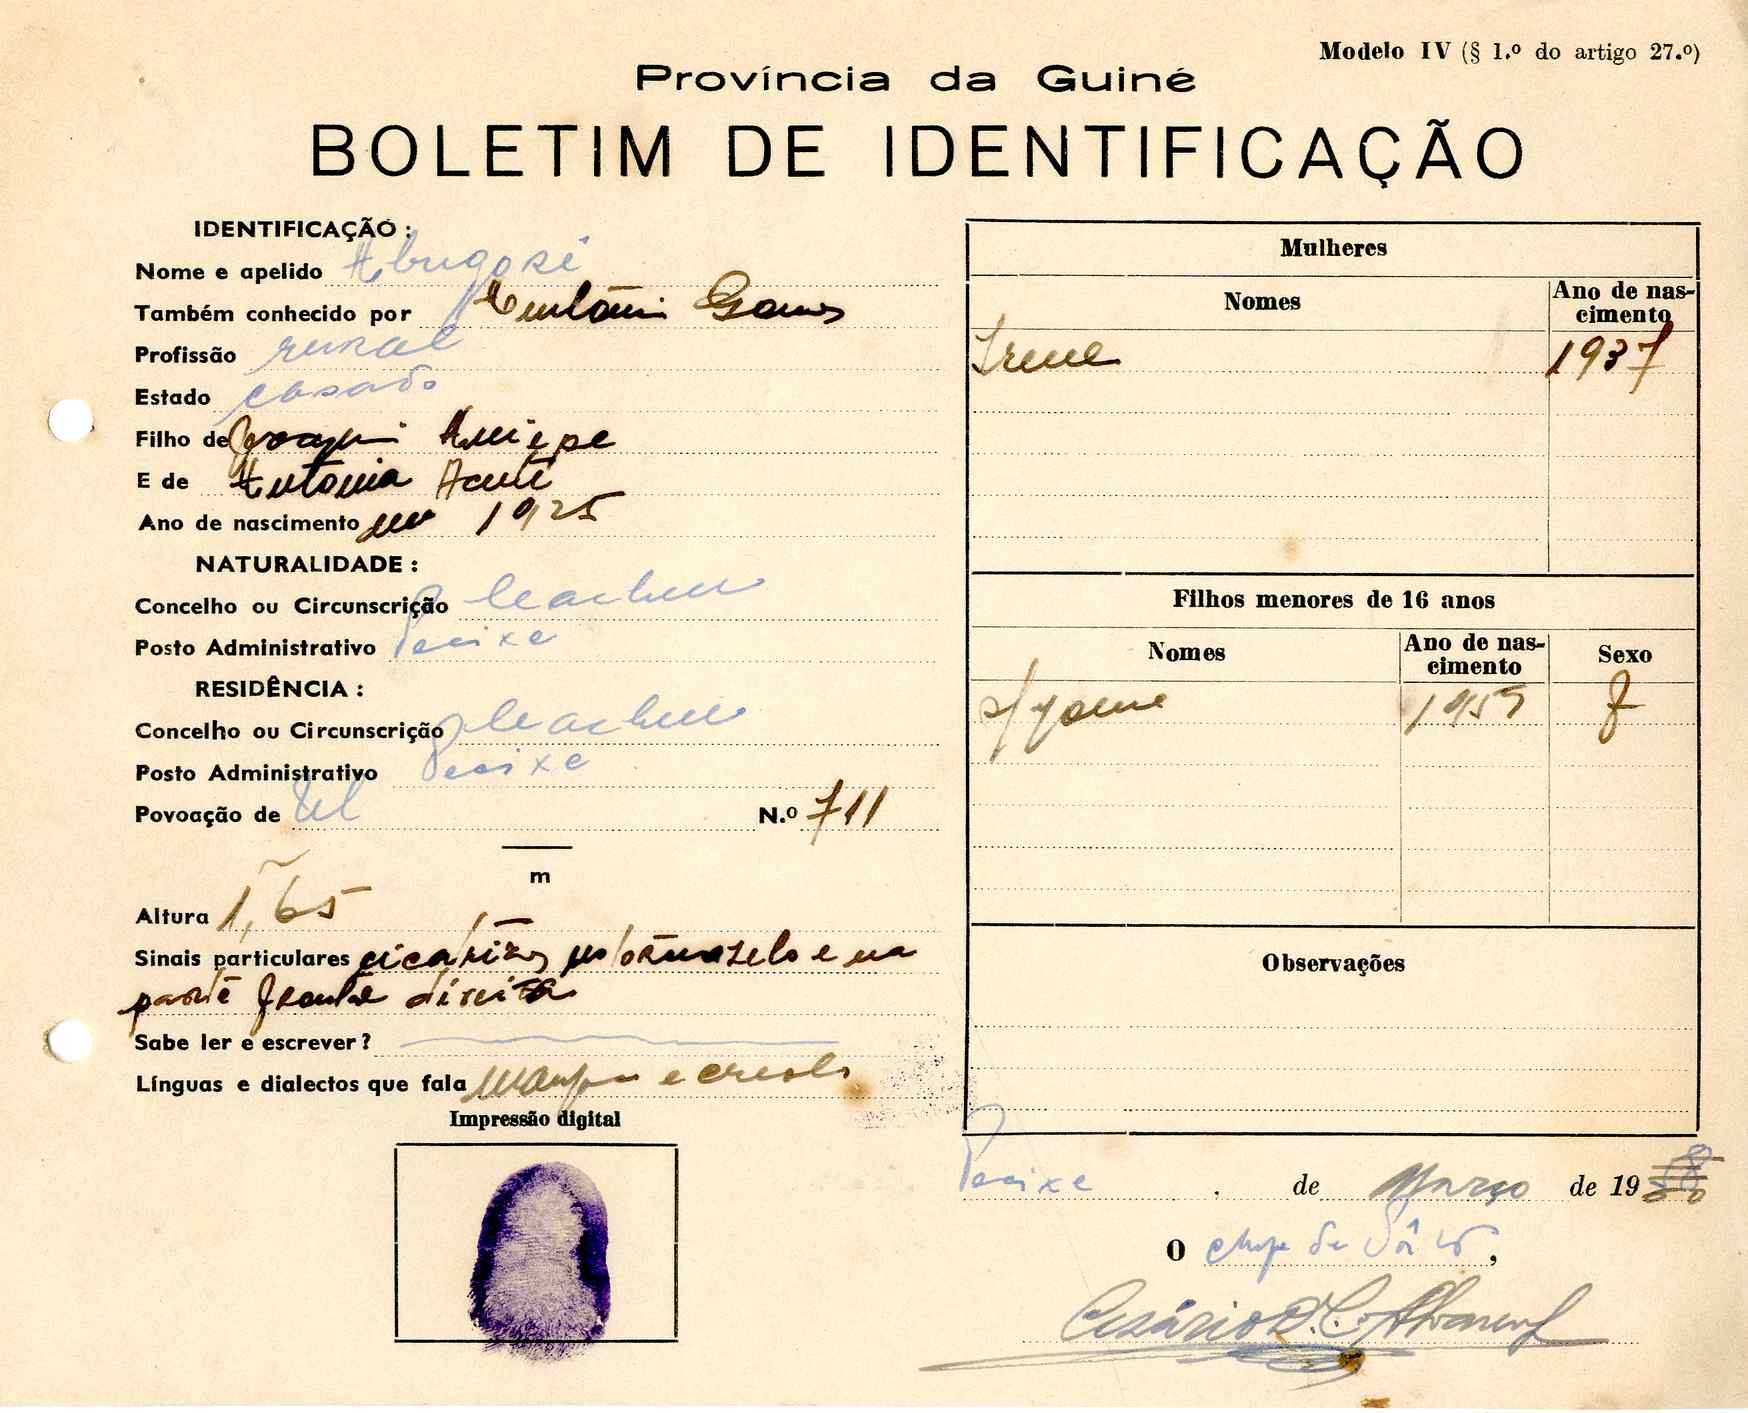 Modelo IV (§ 1.º do artigo 27.º)
Província da Guiné
BOLETIM DE IDENTIFICAÇÃO
IDENTIFICAÇÃO :
Nome e apelido
Também conhecido por Gomes
Profissão rural
Estado casado
Filho de Joaquim
E de Antonia
Ano de nascimento em 1925
NATURALIDADE :
Concelho ou Circunscrição Cacheu
Posto Administrativo Pecixe
RESIDÊNCIA :
Concelho ou Circunscrição Cacheu
Posto Administrativo Pecixe
Povoação de N.º 711
m
Altura 1,65
Sinais particulares cicatrizes no tornozelo e na
parte frontal direita
Sabe ler e escrever?
Línguas e dialectos que fala e creolo
Impressão digital
Mulheres
Nomes Ano de nas-
cimento
Irene 1937
Filhos menores de 16 anos
Nomes Ano de nas-
cimento Sexo
s/nome 1959 f
Observações
Pecixe . de Março de 19
O chefe de Pôsto,
Cesário